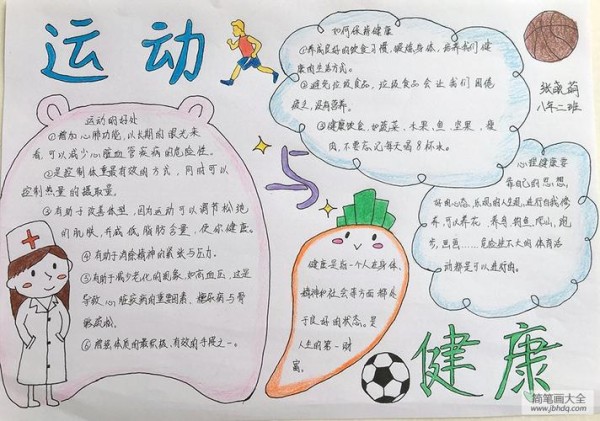 运动
与
健康
运动的好处
①增加心肺功能,以长期的眼光来
看,可以减少心脑血管疾病的危险性。
②是控制体重最有效的方式,同时可以
控制热量的摄取量。
③有助于改善体型,因为运动可以调节松垮
们肌肤,有减低脂肪含量,使你健康。
④有助于消除精神的紧张与压力。
⑤有助于减少老化的现象,如高血压,这是
导致心脏疾病的重要因素、糖尿病与骨
骼疏松。
⑥增强体质的最积极、有效的手段之一。
如何保持健康
①养成良好的饮食习惯,锻炼身体,培养我们健
康的生活方式。
②避免垃圾食品,垃圾食品会让我们困倦
疲乏,没有营养。
③健康饮食,如蔬菜、水果、鱼、坚果、瘦
肉,不要忘记每天喝8杯水。
张 萌
八年二班
心理健康要
靠自己的思想,
好的心态,乐观的人生观,进行自我修
养,可以养花、养鸟、钓鱼、爬山、跑
步、画画……危险性不大的体育活
动都是可以进行的。
健康是指一个人在身体、
精神和社会等方面都处
于良好的状态。是
人生的第一财
富。
简笔画大全
www.jbhdq.com